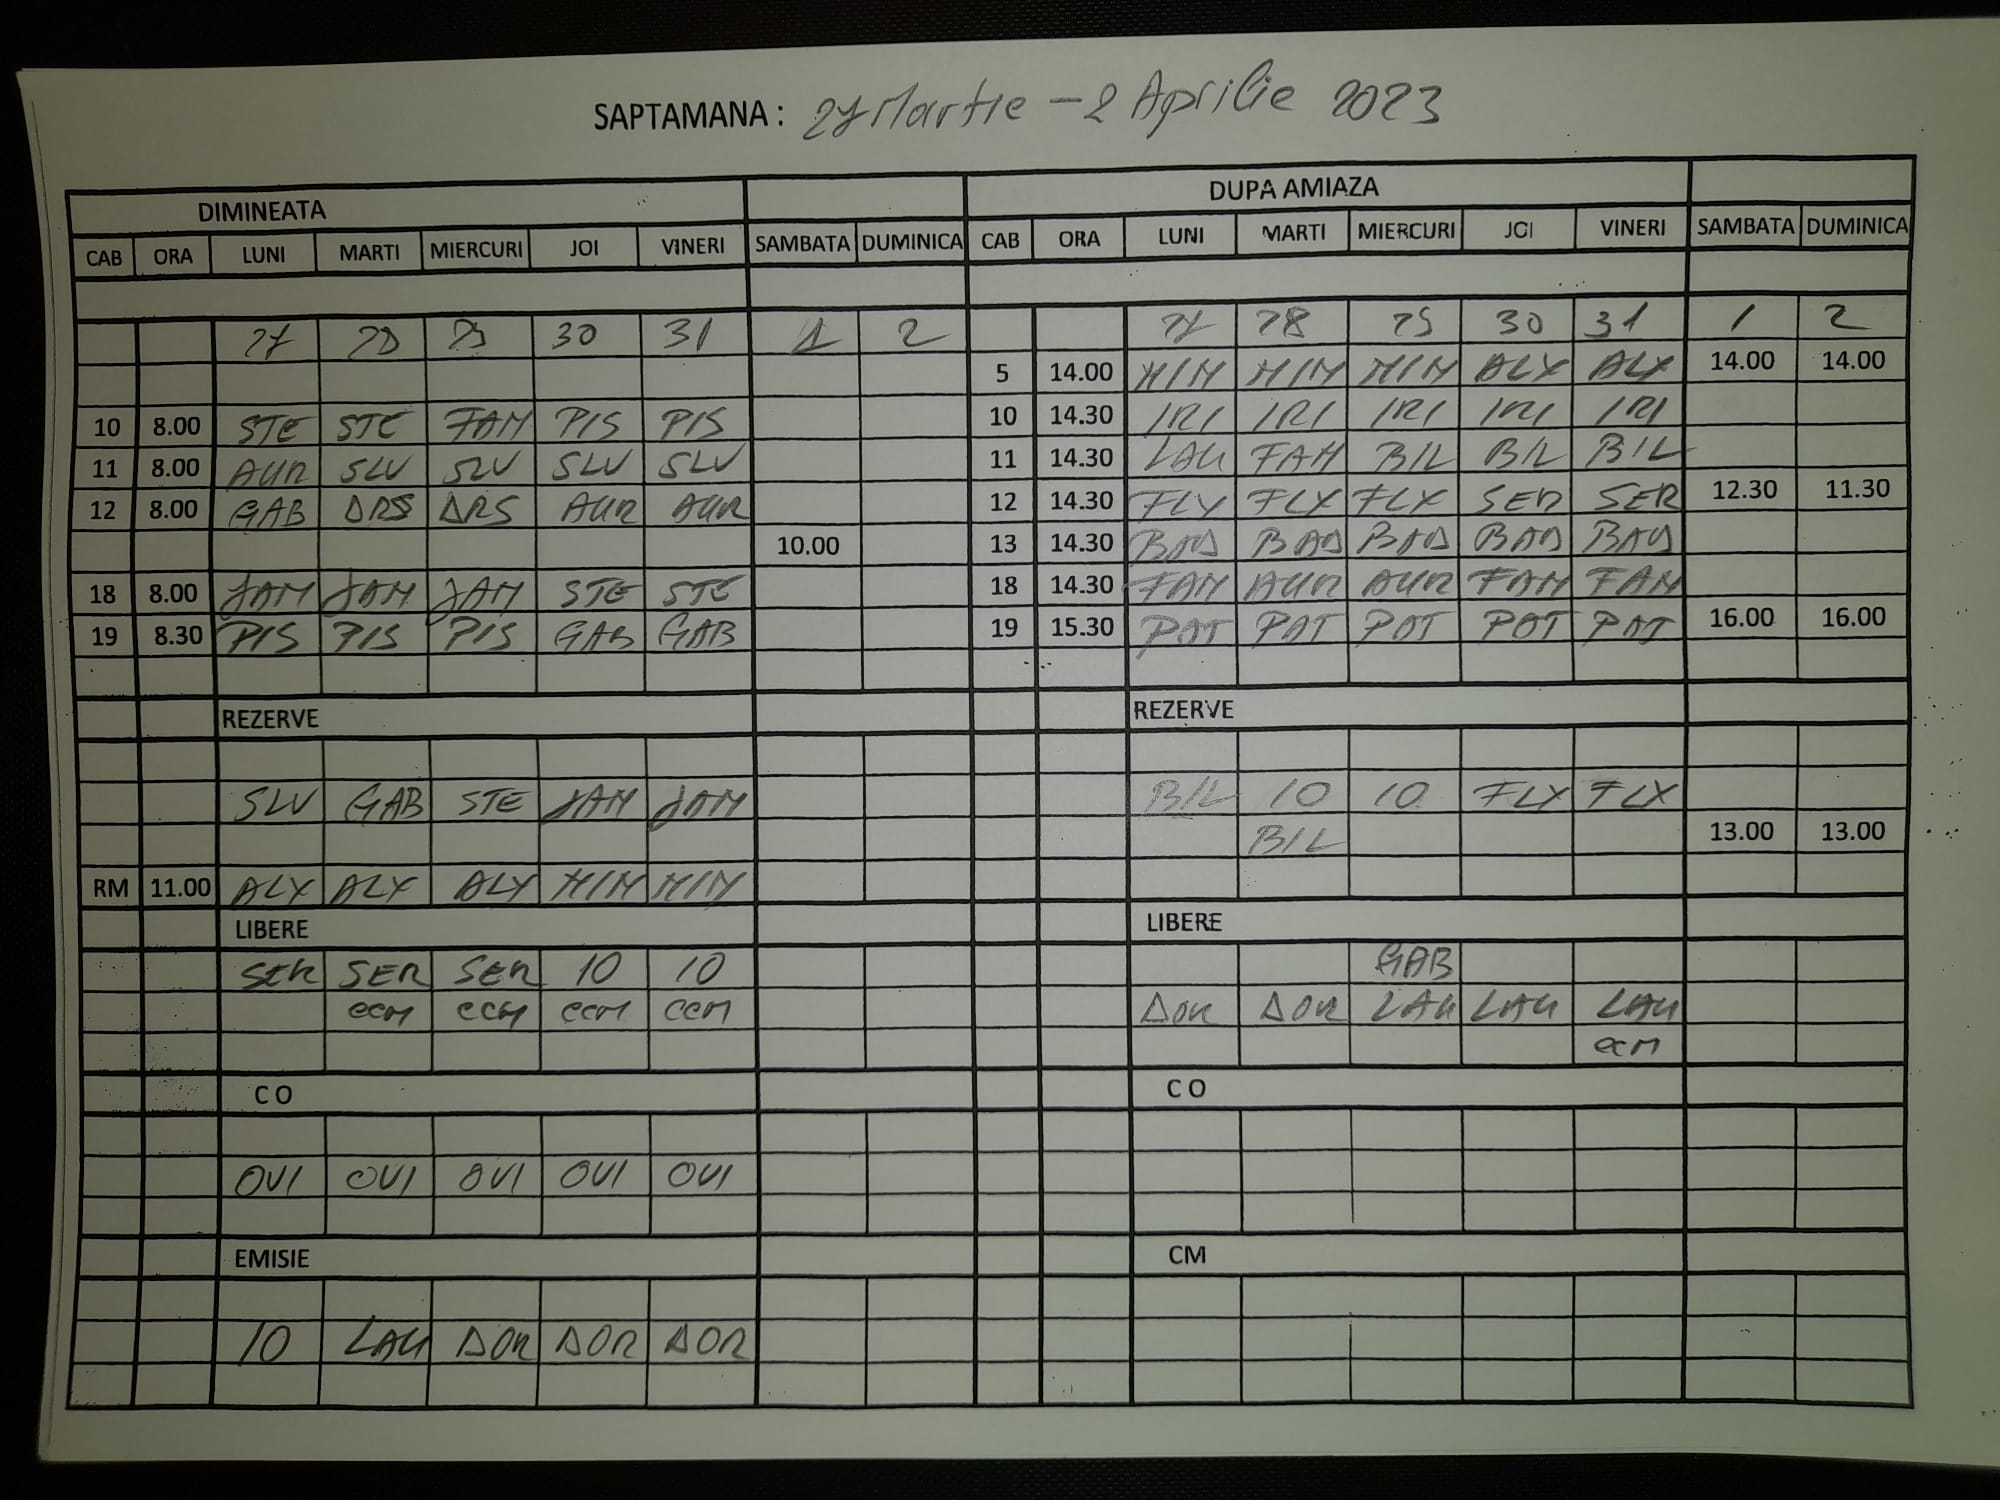 SAPTAMANA : 27 Martie - 2 Aprilie 2023
DIMINEATA DUPA AMIAZA
CAB ORA LUNI MARTI MIERCURI JOI VINERI SAMBATA DUMINICA CAB ORA LUNI MARTI MIERCURI JOI VINERI SAMBATA DUMINICA
27 28 29 30 31 1 2 27 28 29 30 31 1 2
5 14.00 MIM MIM MIM ALX ALX 14.00 14.00
10 8.00 STE STE FAM PIS PIS 10 14.30 IRI IRI IRI IRI IRI
11 8.00 AUR SLV SLV SLV SLV 11 14.30 LAU FAM BIL BIL BIL
12 8.00 GAB DRS DRS AUR AUR 12 14.30 FLX FLX FLX SER SER 12.30 11.30
10.00 13 14.30 BAD BAD BAD BAD BAD
18 8.00 JAM JAM JAM STE STE 18 14.30 FAM AUR AUR FAM FAM
19 8.30 PIS PIS PIS GAB GAB 19 15.30 POT POT POT POT POT 16.00 16.00
REZERVE REZERVE
SLV GAB STE JAM JAM BIL 10 10 FLX FLX
BIL 13.00 13.00
RM 11.00 ALX ALX ALX MIM MIM
LIBERE LIBERE
SER SER SER 10 10 GAB
ccm ccm ccm ccm DOR DOR LAU LAU LAU
ccm
C O C O
OVI OVI OVI OVI OVI
EMISIE CM
10 LAU DOR DOR DOR